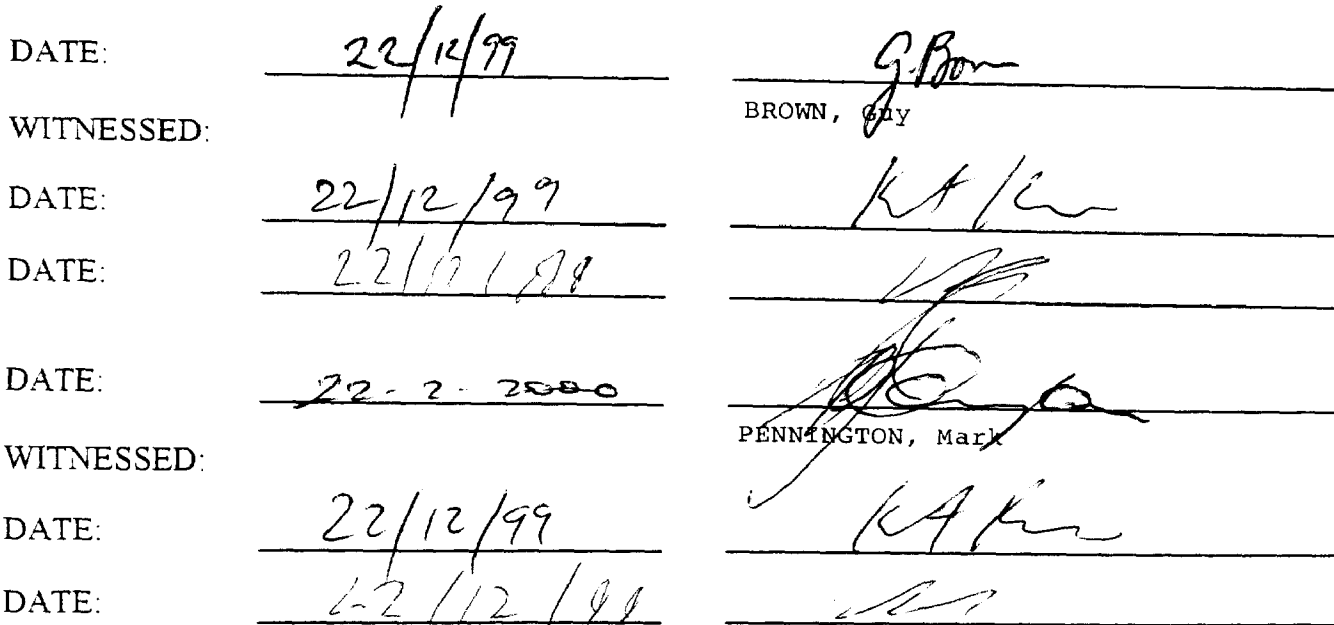 DATE: 22/12/99 G. Brown
BROWN, Guy
WITNESSED:
DATE: 22/12/99
DATE: 22/12/99
DATE: 22-2-2000
PENNINGTON, Mark
WITNESSED:
DATE: 22/12/99
DATE: 22/12/99